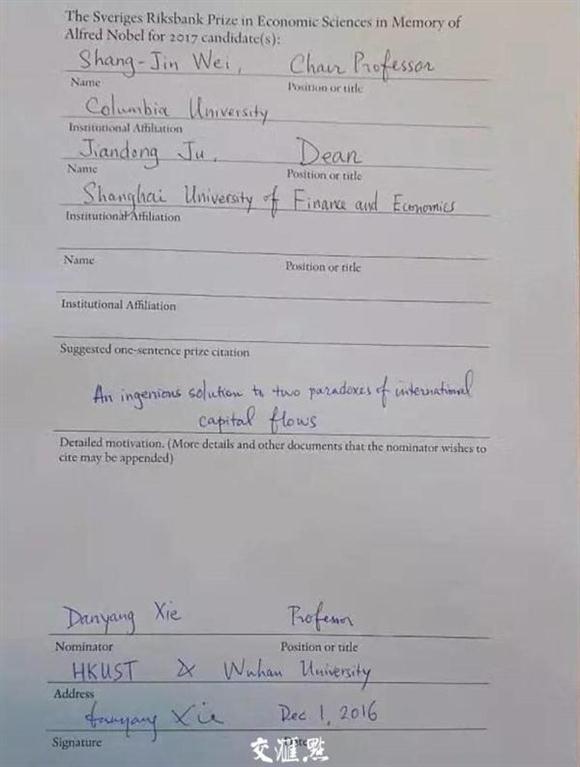 The Sveriges Riksbank Prize in Economic Sciences in Memory of
Alfred Nobel for 2017 candidate(s):
Shang-Jin Wei, Chair Professor
Name Position or title
Columbia University
Institutional Affiliation
Jiandong Ju, Dean
Name Position or title
Shanghai University of Finance and Economics
Institutional Affiliation
Name Position or title
Institutional Affiliation
Suggested one-sentence prize citation
An ingenious solution to two paradoxes of international
capital flows
Detailed motivation. (More details and other documents that the nominator wishes to
cite may be appended)
Danyang Xie Professor
Nominator Position or title
HKUST & Wuhan University
Address
Danyang Xie Dec 1, 2016
Signature Date
交汇点